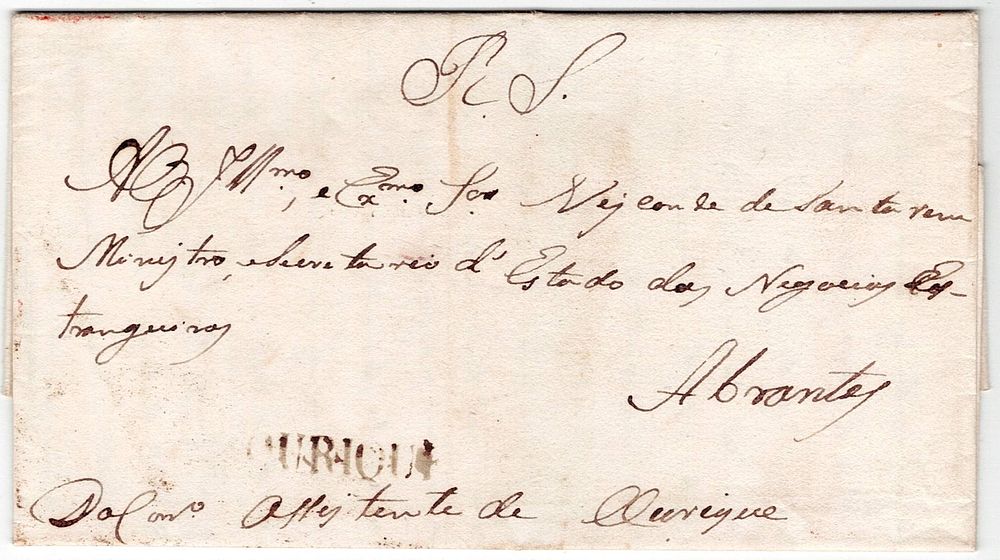 R. S.
Ao Illmo, e Exmo. Snr Visconde de Santarem
Ministro, e Secretario d' Estado dos Negocios Es-
trangeiros
Abrantes
OURIQUE
Do Corro Assistente de Ourique